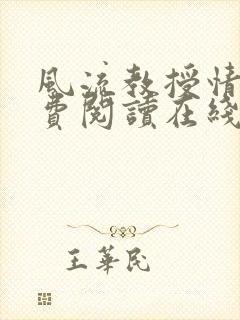 風流教授情
費閱讀在綫
王華民